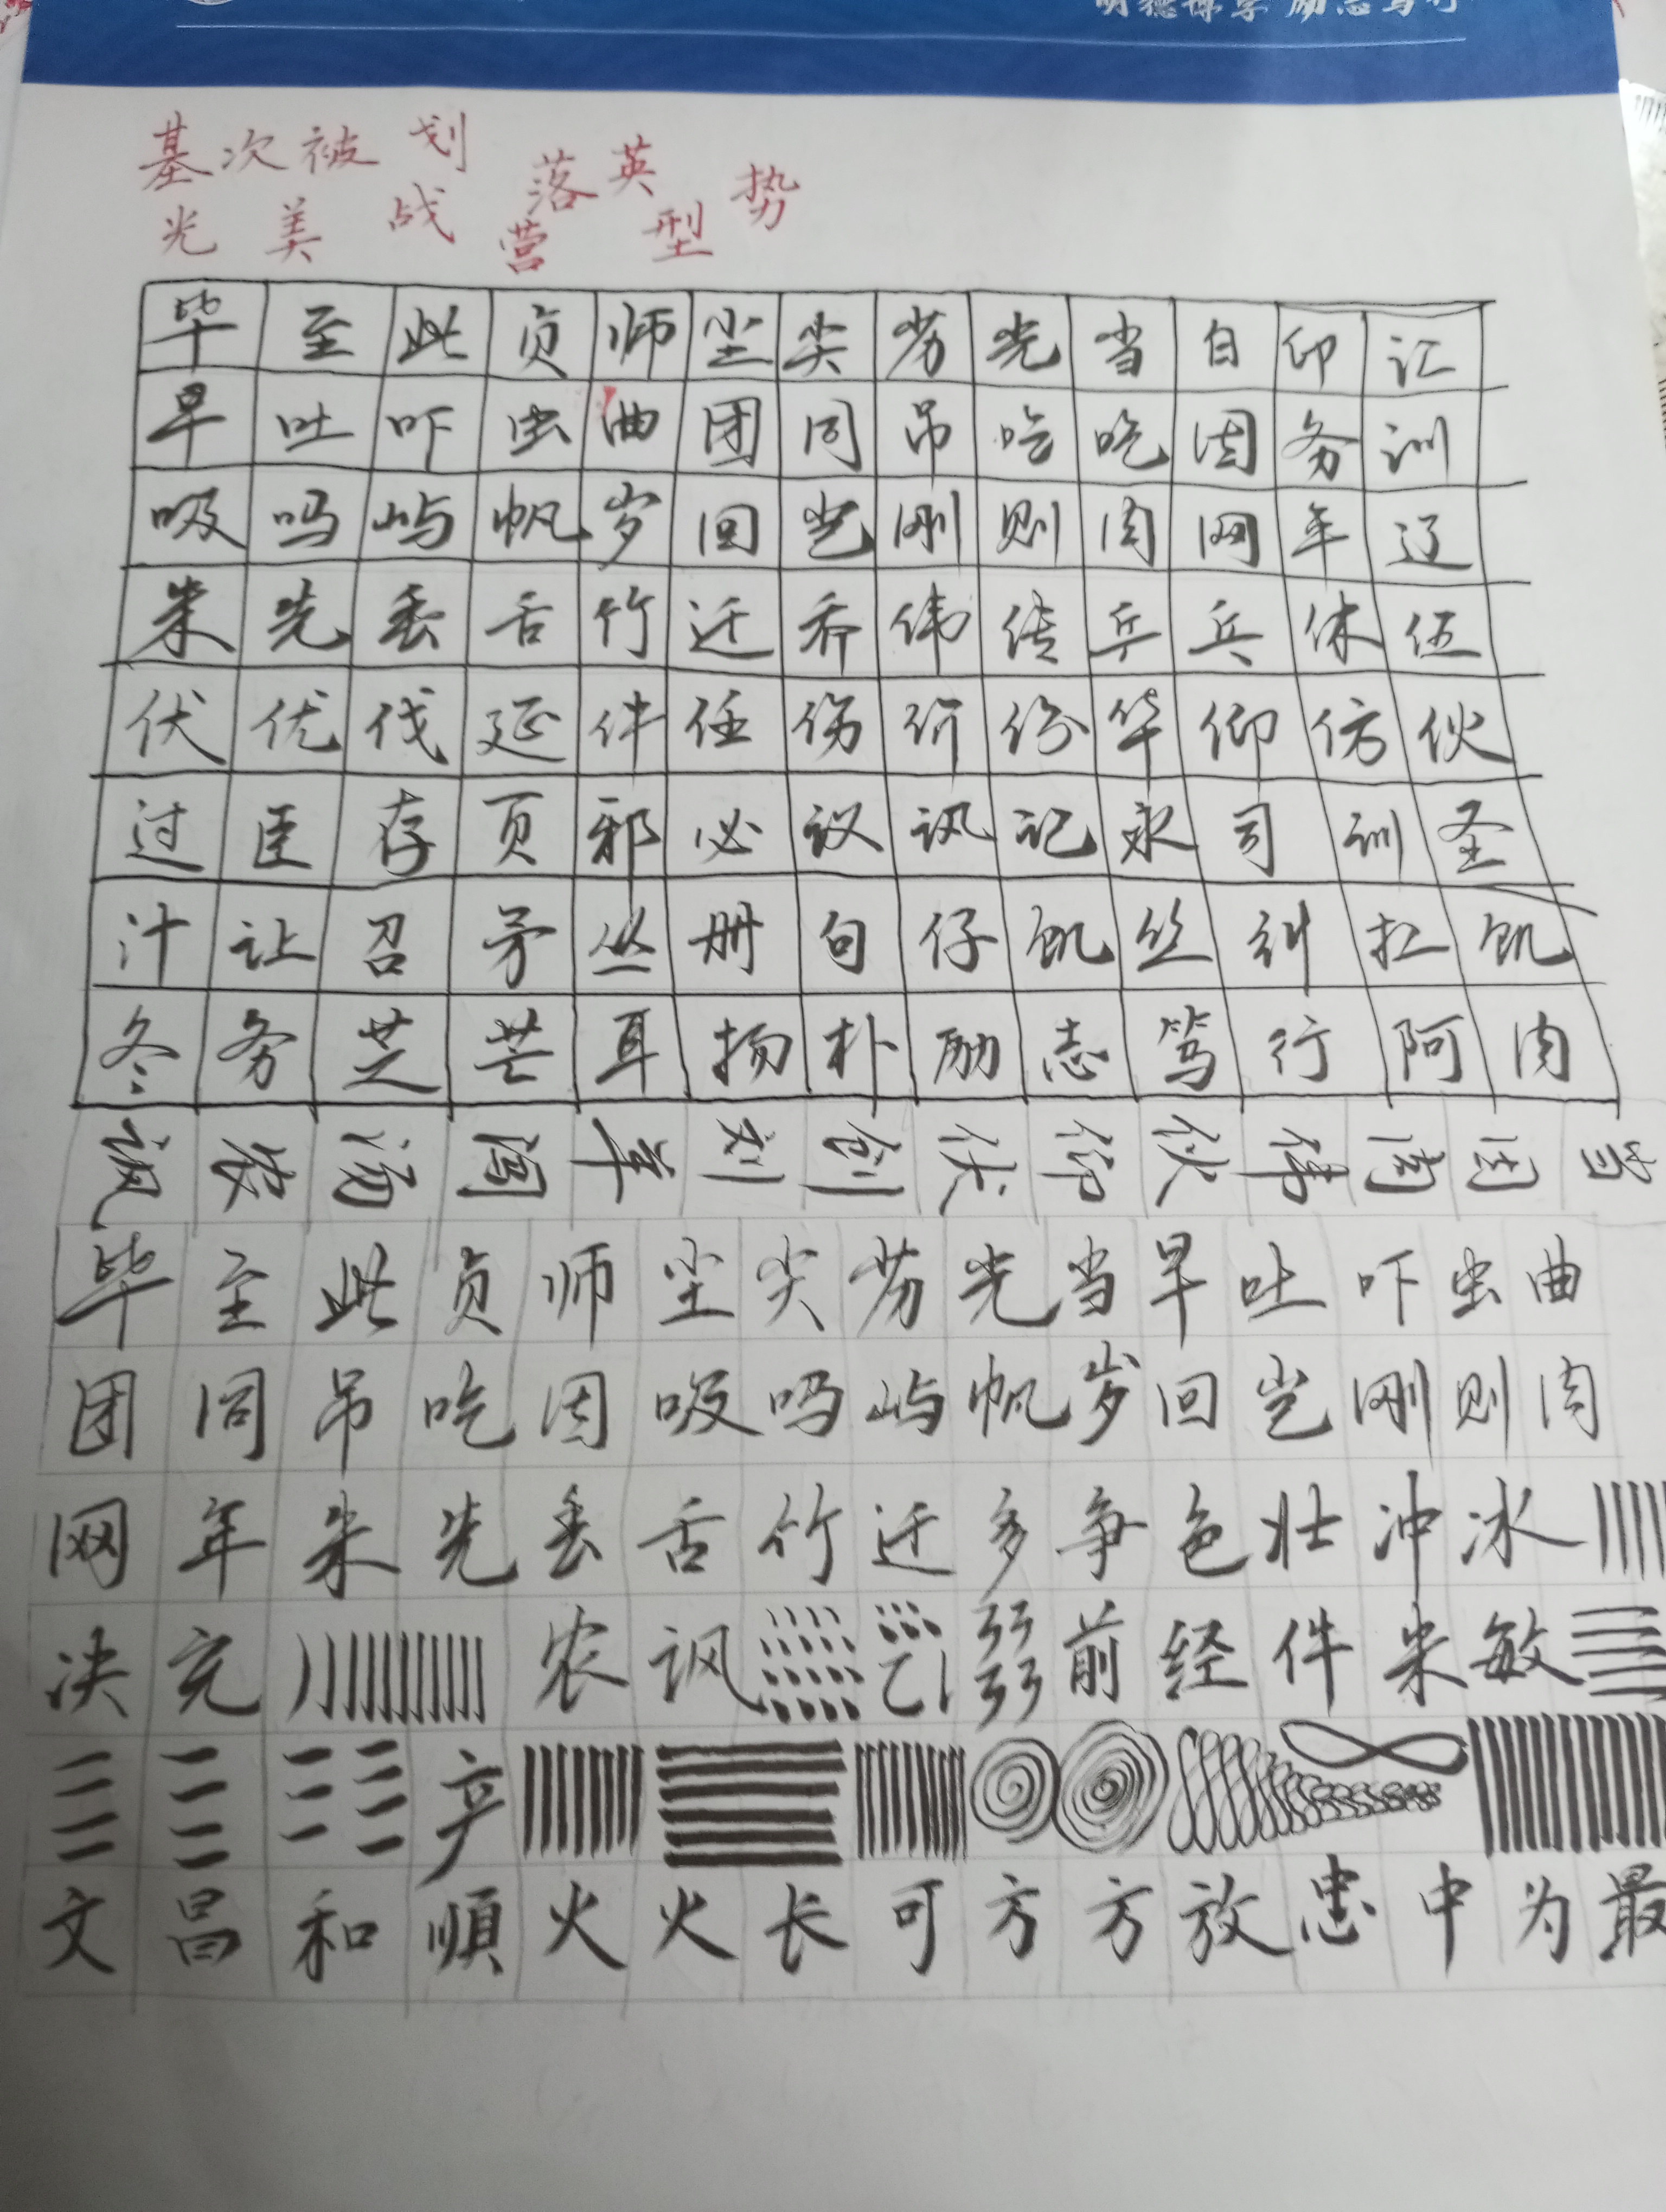 明德博学 励志笃行
基次被划落英势
光美战营型
毕至此贞师尘尖劳光当自印汇
早吐吓虫曲团同吊吃吃因务训
吸吗屿帆岁回岂刚则肉网年辽
朱先丢舌竹迁乔伟传乒兵休伍
伏优伐延件任伤价份华仰仿伙
过臣存页邪必议讯记永司训圣
汁让召矛丛册句仔饥丝纠扛饥
冬务芝芒耳扬朴励志笃行阿肉
毕至此贞师尘尖劳光当早吐吓虫曲
团同吊吃因吸吗屿帆岁回岂刚则肉
网年朱先丢舌竹迁多争色壮冲冰
决充农讽前经件米敏
产
文昌和順火火长可方方放忠中为最